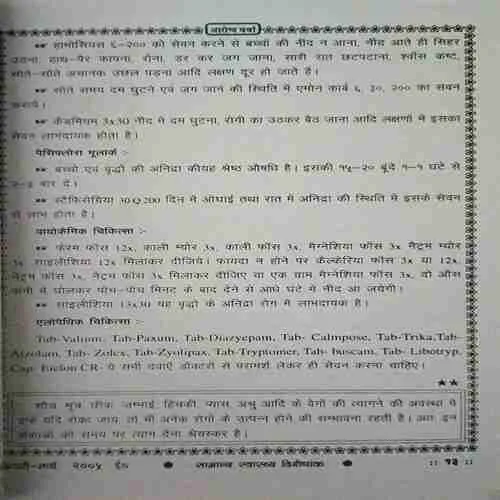 आरोग्य चर्चा
** हायोसियस ६-२०० को सेवन करने से बच्चों की नींद न आना, नींद आते ही सिहर
उठना, हाथ-पैर कांपना, रोना, डर कर जग जाना, सारी रात छटपटाना, श्वाँस कष्ट,
सोते-सोते अचानक उछल पड़ना आदि लक्षण दूर हो जाते हैं।
** सोते समय दम घुटने एवं जग जाने की स्थिति में एमोन कार्ब ६, ३०, २०० का सेवन
करायें।
** कैडमियम 3x30 नींद में दम घुटना, रोगी का उठकर बैठ जाना आदि लक्षणों में इसका
सेवन लाभदायक होता है।
पैसिफ्लोरा मूलार्क :-
** बच्चों एवं वृद्धों की अनिद्रा कीयह श्रेष्ठ औषधि है। इसकी १५-२० बूंदे १-१ घंटे से
बार दें।
** स्टैफिसेग्रिया 30 Q 200 दिन में ओंघाई तथा रात में अनिद्रा की स्थिति में इसके सेवन
से लाभ होता है।
बायोकैमिक चिकित्सा :-
** फेरम फॉस 12x, काली म्योर 3x, काली फॉस 3x, मैग्नेशिया फॉस 3x नैट्रम म्योर
3x साइलीशिया 12x मिलाकर दीजिये। फायदा न होने पर कैल्केरिया फॉस 3x या 12x,
नैट्रम फॉस 3x, नेट्रम फॉस 3x मिलाकर दीजिए या एक ग्राम मैग्नेशिया फॉस 3x, दो औंस
पानी में घोलकर पाँच-पाँच मिनट के बाद देने से आधे घंटे में नींद आ जायेगी।
** साइलीशिया 13x30 यह वृद्धों के अनिद्रा रोग में लाभदायक है।
एलोपैथिक चिकित्सा :-
Tab-Valium, Tab-Paxum, Tab-Diazyepam, Tab- Calmpose, Tab-Trika,Tab-
Alzolam, Tab- Zolex, Tab-Zyolipax, Tab-Tryptomer, Tab- buscam, Tab- Libotryp,
Cap- Euclon CR- ये सभी दवाएँ डॉक्टरों से परामर्श लेकर ही सेवन करना चाहिए।
★★
शौच मूत्र छींक जम्हाई हिचकी प्यास अश्रु आदि के वेगों की त्यागने की अवस्था में
इन्हें यदि रोका जाय, तो भी अनेक रोगों के उत्पन्न होने की सम्भावना रहती है। अतः इन
को समय पर त्याग देना श्रेयस्कर है।
मार्च २००५ ई० ● सामान्य स्वास्थ्य विशेषांक ● :: १३ ::